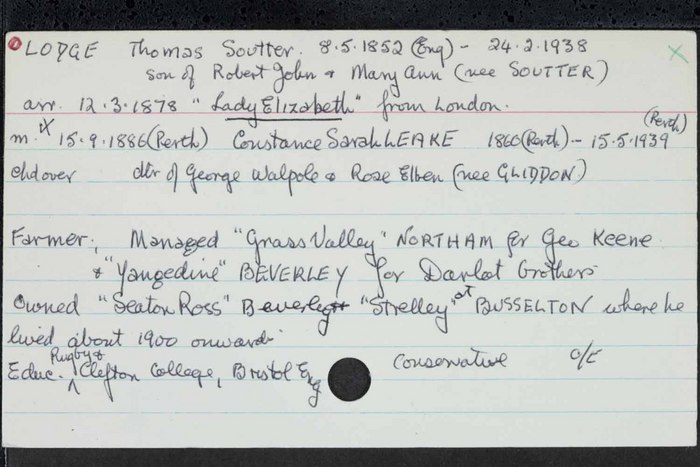 LODGE Thomas Soutter. 8.5.1852 (Eng) - 24.2.1938
son of Robert John & Mary Ann (nee SOUTTER)
arr. 12.3.1878 "Lady Elizabeth" from London.
(Perth)
m. 15.9.1886 (Perth) Constance Sarah LEAKE 1860 (Perth) - 15.5.1939
chd over dtr of George Walpole & Rose Ellen (nee GLIDDON)
Farmer, Managed "Grass Valley" NORTHAM for Geo Keene
& "Yangedine" BEVERLEY for Darlot Brothers
Owned "Seaton Ross" Beverley & "Strelley" at BUSSELTON where he
lived about 1900 onwards
Educ. Rugby & Clifton College, Bristol Eng Conservative C/E